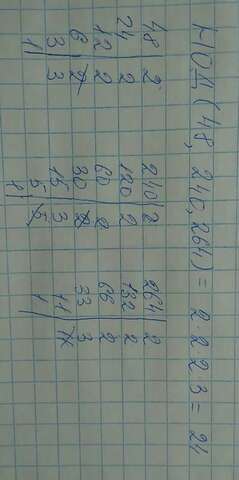 НОД (48, 240, 264) = 2·2·2·3 = 24
48|2 240|2 264|2
24|2 120|2 132|2
12|2 60|2 66|2
6|2 30|2 33|3
3|3 15|3 11|11
1| 5|5 1|
1|